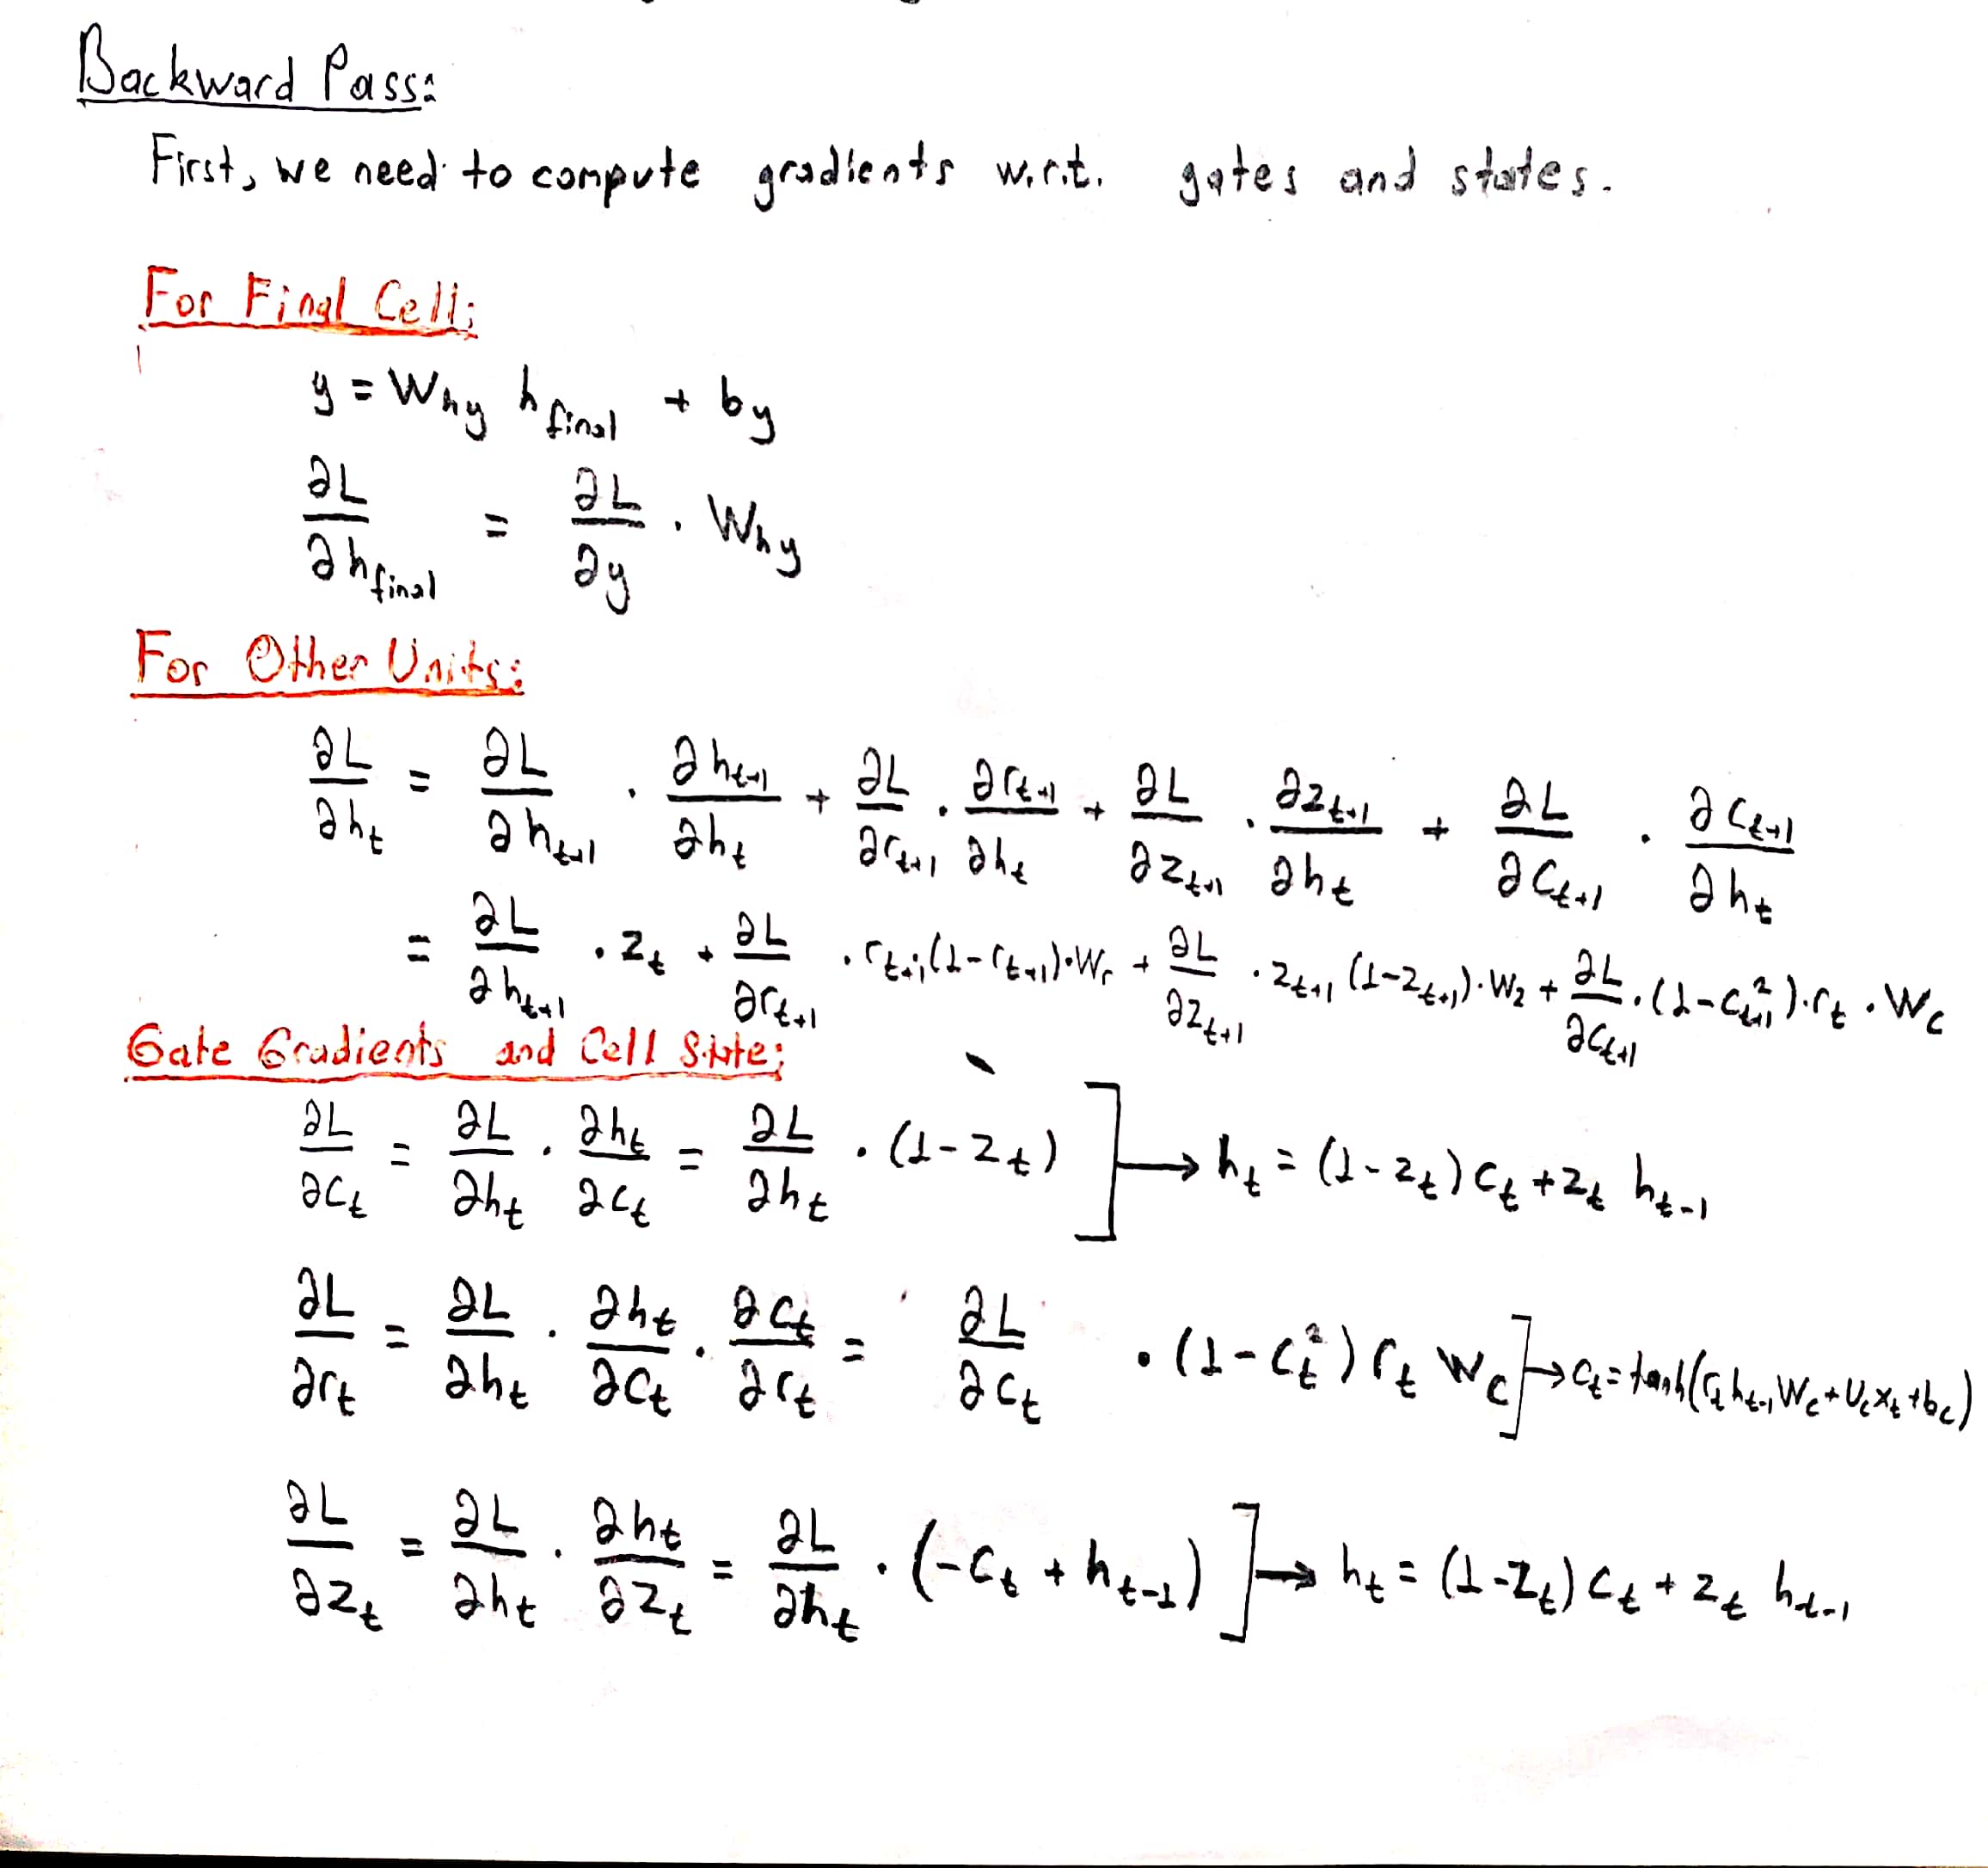 Backward Pass:
First, we need to compute gradients w.r.t. gates and states.
For Final Cell:
y = W_hy h_final + b_y
∂L/∂h_final = ∂L/∂y · W_hy
For Other Units:
∂L/∂h_t = ∂L/∂h_{t+1} · ∂h_{t+1}/∂h_t + ∂L/∂r_{t+1} · ∂r_{t+1}/∂h_t + ∂L/∂z_{t+1} · ∂z_{t+1}/∂h_t + ∂L/∂c_{t+1} · ∂c_{t+1}/∂h_t
= ∂L/∂h_{t+1} · z_t + ∂L/∂r_{t+1} · r_{t+1}(1-r_{t+1})·W_r + ∂L/∂z_{t+1} · z_{t+1}(1-z_{t+1})·W_z + ∂L/∂c_{t+1} · (1-c_{t+1}^2)·r_t·W_c
Gate Gradients and Cell State:
∂L/∂c_t = ∂L/∂h_t · ∂h_t/∂c_t = ∂L/∂h_t · (1-z_t) ]→ h_t = (1-z_t)c_t + z_t h_{t-1}
∂L/∂r_t = ∂L/∂h_t · ∂h_t/∂c_t · ∂c_t/∂r_t = ∂L/∂c_t · (1-c_t^2) r_t W_c ]→ c_t = tanh(r_t h_{t-1} W_c + U_c x_t + b_c)
∂L/∂z_t = ∂L/∂h_t · ∂h_t/∂z_t = ∂L/∂h_t · (-c_t + h_{t-1}) ]→ h_t = (1-z_t)c_t + z_t h_{t-1}